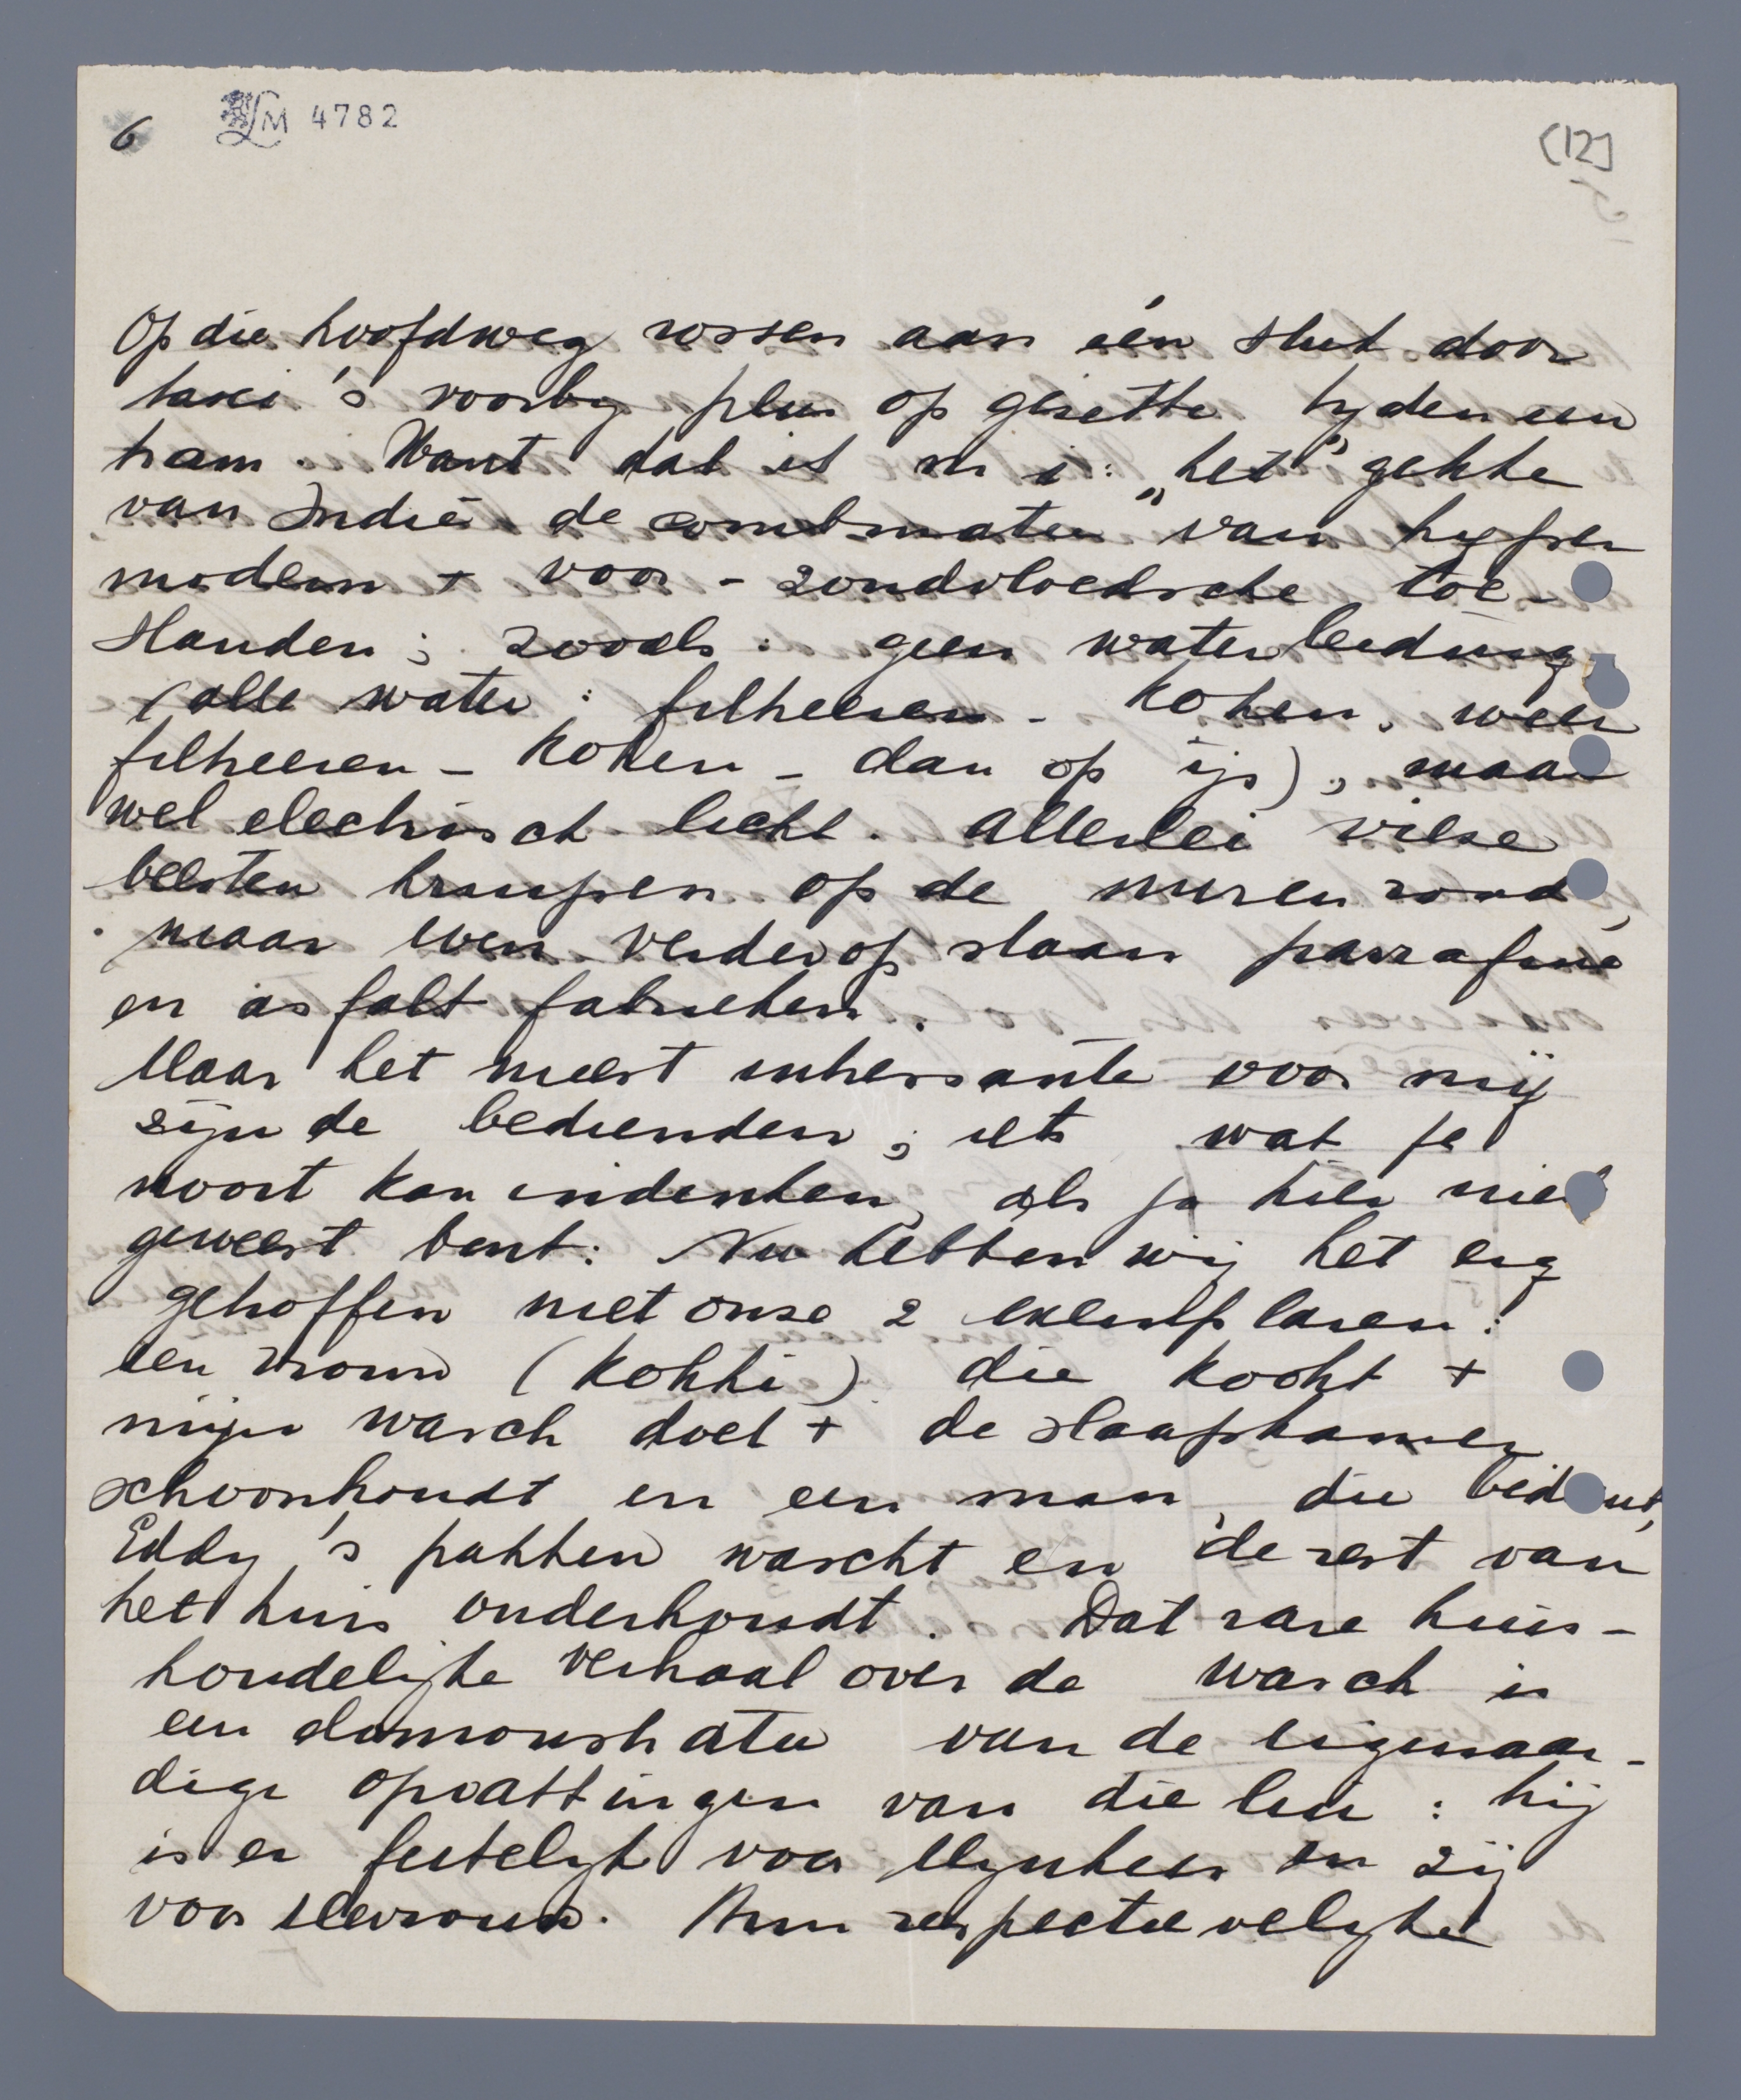 6 LM 4782 (12]
Op die hoofdweg rossen aan één stuk door
taxi's voorbij plus op gezette tyden een
tram. Want dat is m i: „het” gekke
van Indië de combinatie van hyper
modern + voor-zondvloedsche toe-
standen; zooals: geen waterleiding
(alle water: filtreeren - koken, weer
filtreeren - koken - dan op ijs), maar
wel electrisch licht. Allerlei vieze
beesten kruipen op de muren rond,
maar even verderop staan parrafine
en asfalt fabrieken.
Maar het meest interessante voor mij
zijn de bedienden; iets wat je
nooit kan indenken, als je hier niet
geweest bent: Nu hebben wij het erg
getroffen met onze 2 exemplaren:
een vrouw (kokki) die kookt +
mijn wasch doet + de slaapkamer
schoonhoudt en een man, die bedient,
Eddy's pakken wascht en de rest van
het huis onderhoudt. Dat rare huis-
houdelijke verhaal over de wasch is
een demonstratie van de eigenaar-
dige opvattingen van die lui: hij
is er feitelijk voor Mynheer en zij
voor Mevrouw. Hun respectievelyke